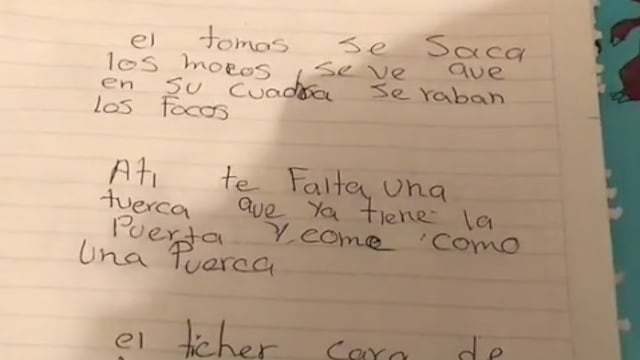 el tomas se saca
los mocos, se ve que
en su cuadra se raban
los focos
A ti te Falta una
tuerca que ya tiene la
Puerta y come como
una Puerca
el ticher cara de